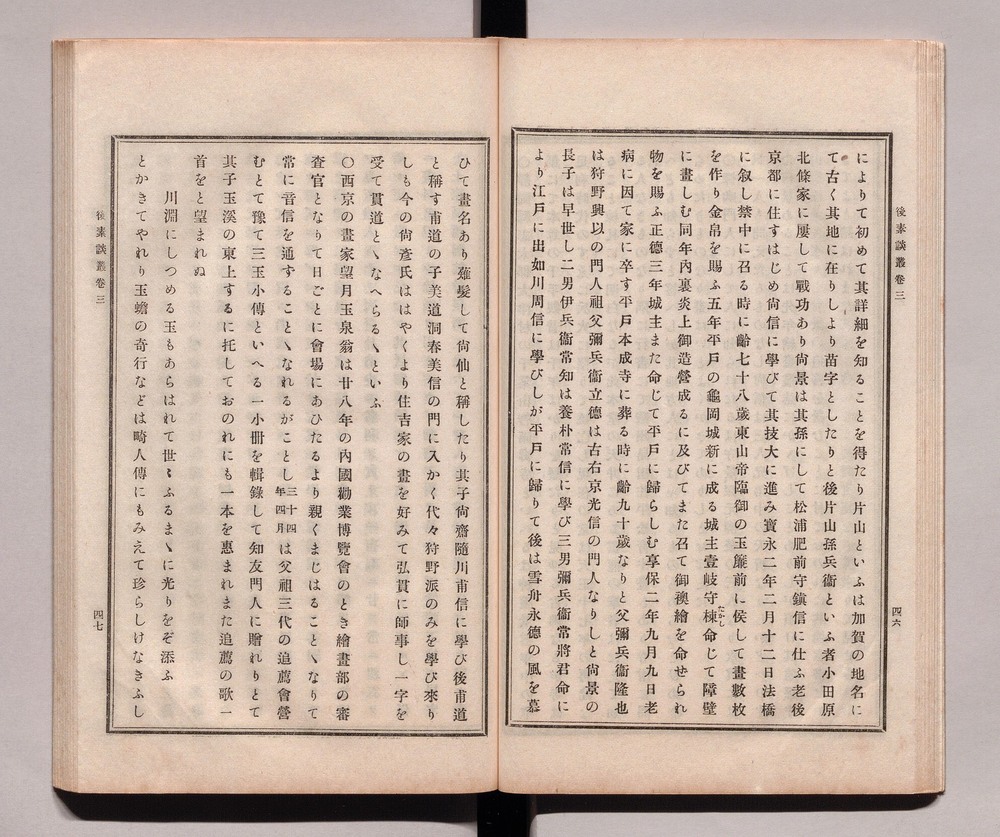 後素談叢卷三
によりて初めて其詳細を知ることを得たり片山といふは加賀の地名に
て古く其地に在りしより苗字としたりと後片山孫兵衞といふ者小田原
北條家に屢して戰功あり尙景は其孫にして松浦肥前守鎭信に仕ふ老後
京都に住すはじめ尙信に學びて其技大に進み寶永二年二月十二日法橋
に叙し禁中に召る時に齡七十八歲東山帝臨御の玉簾前に侯して畫數枚
を作り金帛を賜ふ五年平戸の龜岡城新に成る城主壹岐守棟たかし命じて障壁
に畫しむ同年內裏炎上御造營成るに及びてまた召て御襖繪を命せられ
物を賜ふ正德三年城主また命じて平戸に歸らしむ享保二年九月九日老
病に因て家に卒す平戸本成寺に葬る時に齡九十歲なりと父彌兵衞隆也
は狩野興以の門人祖父彌兵衞立德は古右京光信の門人なりしと尙景の
長子は早世し二男伊兵衞常知は養朴常信に學び三男彌兵衞常將君命に
より江戸に出如川周信に學びしが平戸に歸りて後は雪舟永德の風を慕
四六
ひて畫名あり薙髮して尙仙と稱したり其子尙齋隨川甫信に學び後甫道
と稱す甫道の子美道洞春美信の門に入かく代々狩野派のみを學び來り
しも今の尙彥氏ははやくより住吉家の畫を好みて弘貫に師事し一字を
受て貫道とヽなへらるヽといふ
〇西京の畫家望月玉泉翁は廿八年の內國勸業博覽會のとき繪畫部の審
査官となりて日ごとに會場にあひたるより親くまじはることヽなりて
常に音信を通することヽなれるがことし三十四年四月は父祖三代の追薦會營
むとて豫て三玉小傳といへる一小冊を輯錄して知友門人に贈れりとて
其子玉溪の東上するに托しておのれにも一本を惠まれまた追薦の歌一
首をと望まれぬ
川淵にしつめる玉もあらはれて世〻ふるまヽに光りをぞ添ふ
とかきてやれり玉蟾の奇行などは畸人傳にもみえて珍らしけなきふし
後素談叢卷三
四七